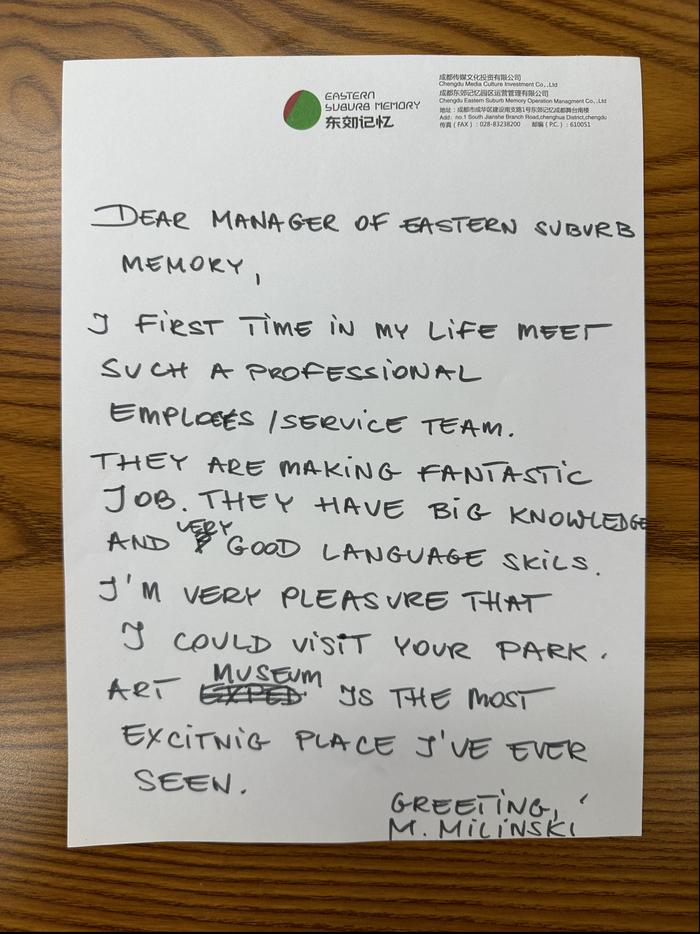 EASTERN
SUBURB MEMORY
东郊记忆
成都传媒文化投资有限公司
Chengdu Media Culture Investment Co,.Ltd
成都东郊记忆园区运营管理有限公司
Chengdu Eastern Suburb Memory Operation Managment Co,.Ltd
地址：成都市成华区建设南支路1号东郊记忆成都舞台南楼
Add：no.1 South Jianshe Branch Road,chenghua District,chengdu
传真（FAX）：028-83238200 邮编（P.C.）：610051
DEAR MANAGER OF EASTERN SUBURB
MEMORY,
I FIRST TIME IN MY LIFE MEET
SUCH A PROFESSIONAL
EMPLOEES /SERVICE TEAM.
THEY ARE MAKING FANTASTIC
JOB. THEY HAVE BIG KNOWLEDGE
AND VERY GOOD LANGUAGE SKILS.
I'M VERY PLEASURE THAT
I COULD VISIT YOUR PARK.
ART MUSEUM IS THE MOST
EXCITNIG PLACE I'VE EVER
SEEN.
GREETING,
M. MILINSKI